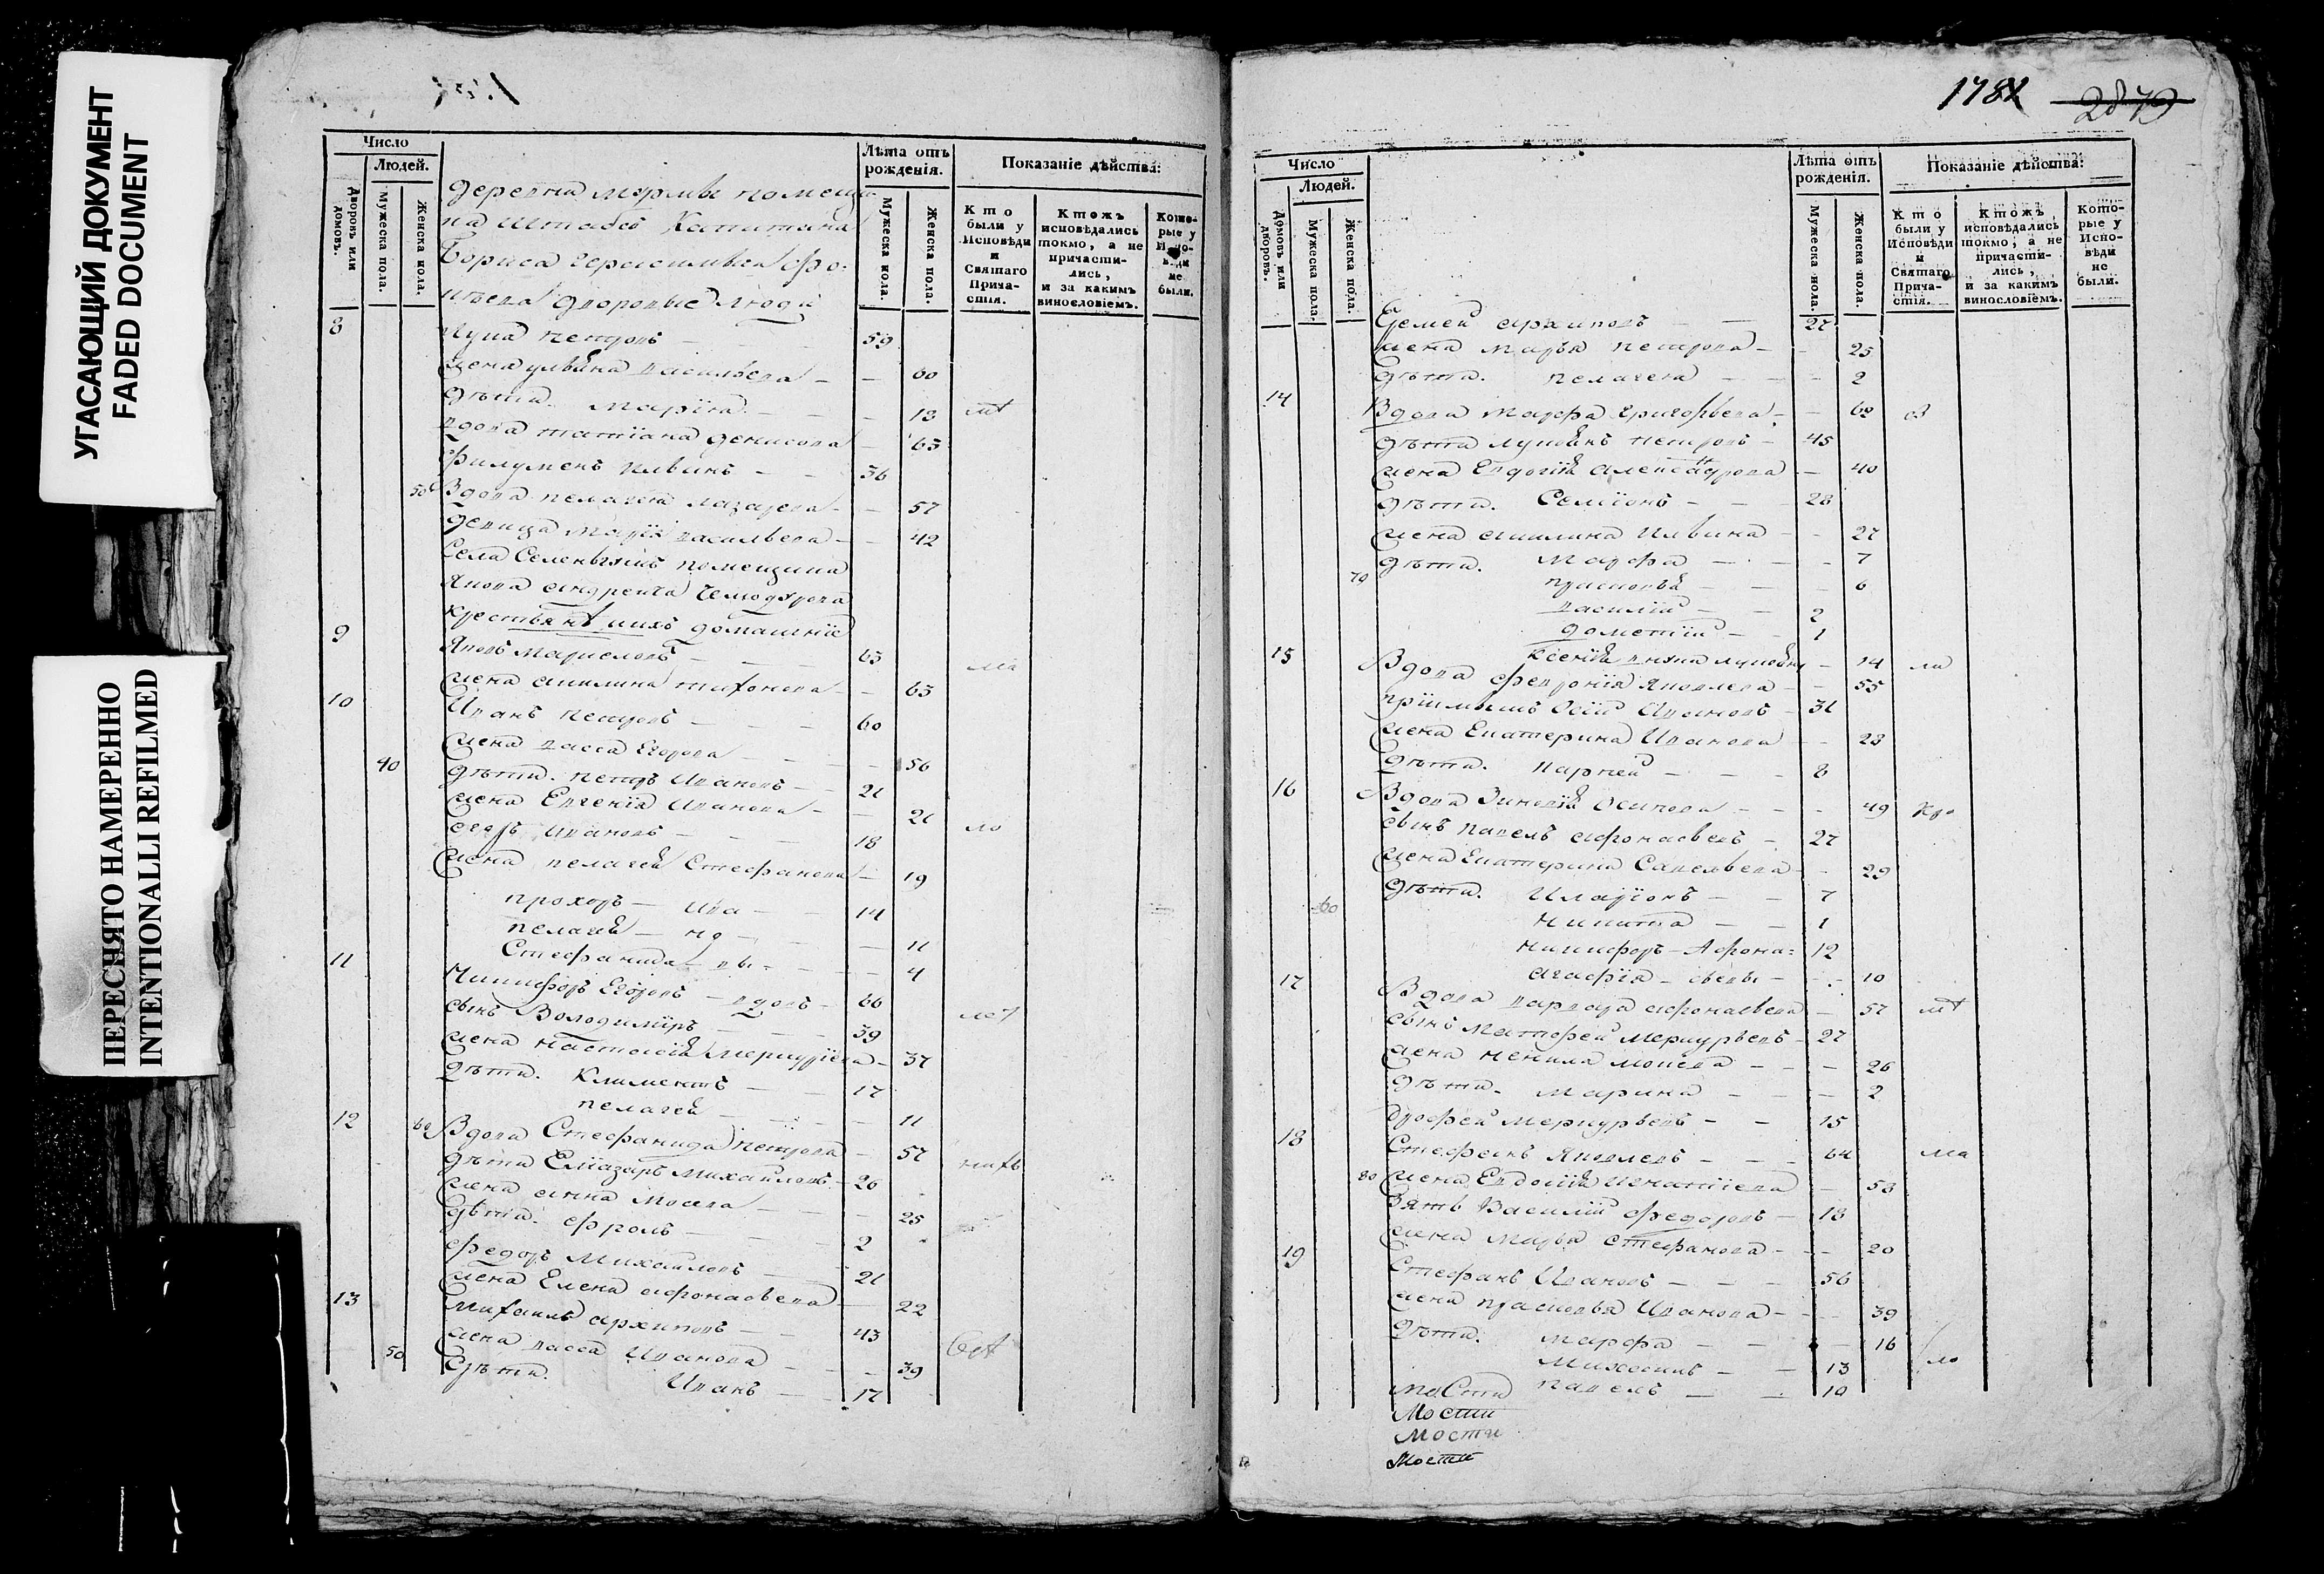 УГАСАЮЩИЙ ДОКУМЕНТ
FADED DOCUMENT
ПЕРЕСНЯТО НАМЕРЕННО
INTENTIONALLI REFILMED
Число
Людей.
Дворовъ или домовъ.
Мужеска пола.
Женска пола.
Лѣта отъ рожденія.
Мужеска пола.
Женска пола.
Показаніе дѣйства:
Кто были у Исповѣди и Святаго Прича-стія.
Ктожъ исповѣдались токмо, а не причасти-лись, и за какимъ винословіемъ.
Кото-рые у Испо-вѣди не были.
деревна помещи
на Штабсъ Капитана
Бориса Герасимова Фо:
дворовые люди
8 Петровъ 59
жена Васильева 60
дѣти. Марїна 18
вдова татїана денисова 63
Филуменъ Ильинъ 36
50 Вдова пелагея лазарева 57
девица Марїя васильева 42
Села помещика
Якова андреича Чемодурова
крестьяне домашнїе
9 Яковъ 63
жена акилина 63
10 Иванъ петровъ 60
жена васса Егорова 56
40 дѣти. петръ Ивановъ 21
жена Евгенїя Иванова 21
Ивановъ 18
жена пелагея Стефанова 19
прохоръ Ива 14
пелагея но 11
Стефанида вы 4
11 Никифоръ Егоровъ вдовъ 66
сынъ Володимїръ 39
жена Настасїя Меркурїева 37
дѣти. Климентъ 17
пелагея 11
12 60 Вдова Стефанида петрова 57
дѣти Елїазаръ Михайловъ 26
жена анна Мосева 25
дѣти. Фролъ 2
Федоръ Михайловъ 21
жена Елена афонасьева 22
13 Михаилъ архиповъ 43
жена васса Иванова 39
50 дѣти. Иванъ 17
1781 2879
Число
Людей.
Домовъ или дворовъ.
Мужеска пола.
Женска пола.
Лѣта отъ рожденія.
Мужеска пола.
Женска пола.
Показаніе дѣйства:
Кто были у Исповѣди и Святаго Прича-стія.
Ктожъ исповѣдались токмо, а не причасти-лись, и за какимъ винословіемъ.
Кото-рые у Испо-вѣди не были.
архиповъ 27
жена марья петрова 25
дѣти. пелагея 2
14 Вдова марфа григорьева 62
дѣти петровъ 45
жена Евдокїя александрова 40
дѣти. Семїонъ 28
жена акилина Ильина 27
дѣти. Марфа 7
70 прасковья 6
василїй 2
дометїй 1
Ксенїя 14
15 Вдова феврония Яковлева 55
прїимышъ Осїй Ивановъ 31
жена Екатерина Иванова 28
дѣти. 8
16 Вдова Зиновїя Осипова 49
сынъ павелъ афонасьевъ 27
жена Екатерина Савельева 29
дѣти. Иларїонъ 7
60 Никита 1
никифоръ Афона= 12
агафїя сьевы 10
17 Вдова варвара афонасьева 57
сынъ Матфей Меркурьевъ 27
жена ненила мокеева 26
дѣти. марина 2
Меркурьевъ 15
18 Стефанъ Яковлевъ 64
80 жена Евдокїя Игнатїева 53
Зять Василїй федоровъ 18
жена Марья Стефанова 20
19 Стефанъ Ивановъ 56
жена прасковья Иванова 39
дѣти. марфа 16
Михаилъ 13
павелъ 10
МоСти
Мости
Мости
Мости